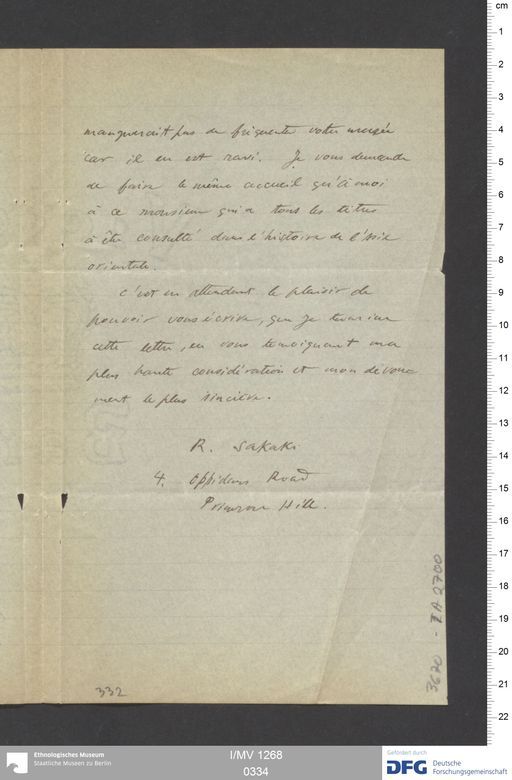 manquerait pas de fréquenter votre musée
car il en est ravi. Je vous demande
de faire le même accueil qu'à moi
à ce monsieur qui a tous les titres
à être consulté dans l'histoire de l'Asie
orientale.
C'est en attendant le plaisir de
pouvoir vous écrire, que je termine
cette lettre, en vous témoignant ma
plus haute considération et mon dévoue
ment le plus sincère.
R. Sakaki
4. Oppidans Road
Primrose Hill.
332
3620 - IA 2700
cm
1
2
3
4
5
6
7
8
9
10
11
12
13
14
15
16
17
18
19
20
21
22
Ethnologisches Museum
Staatliche Museen zu Berlin
I/MV 1268
0334
Gefördert durch
DFG Deutsche
Forschungsgemeinschaft